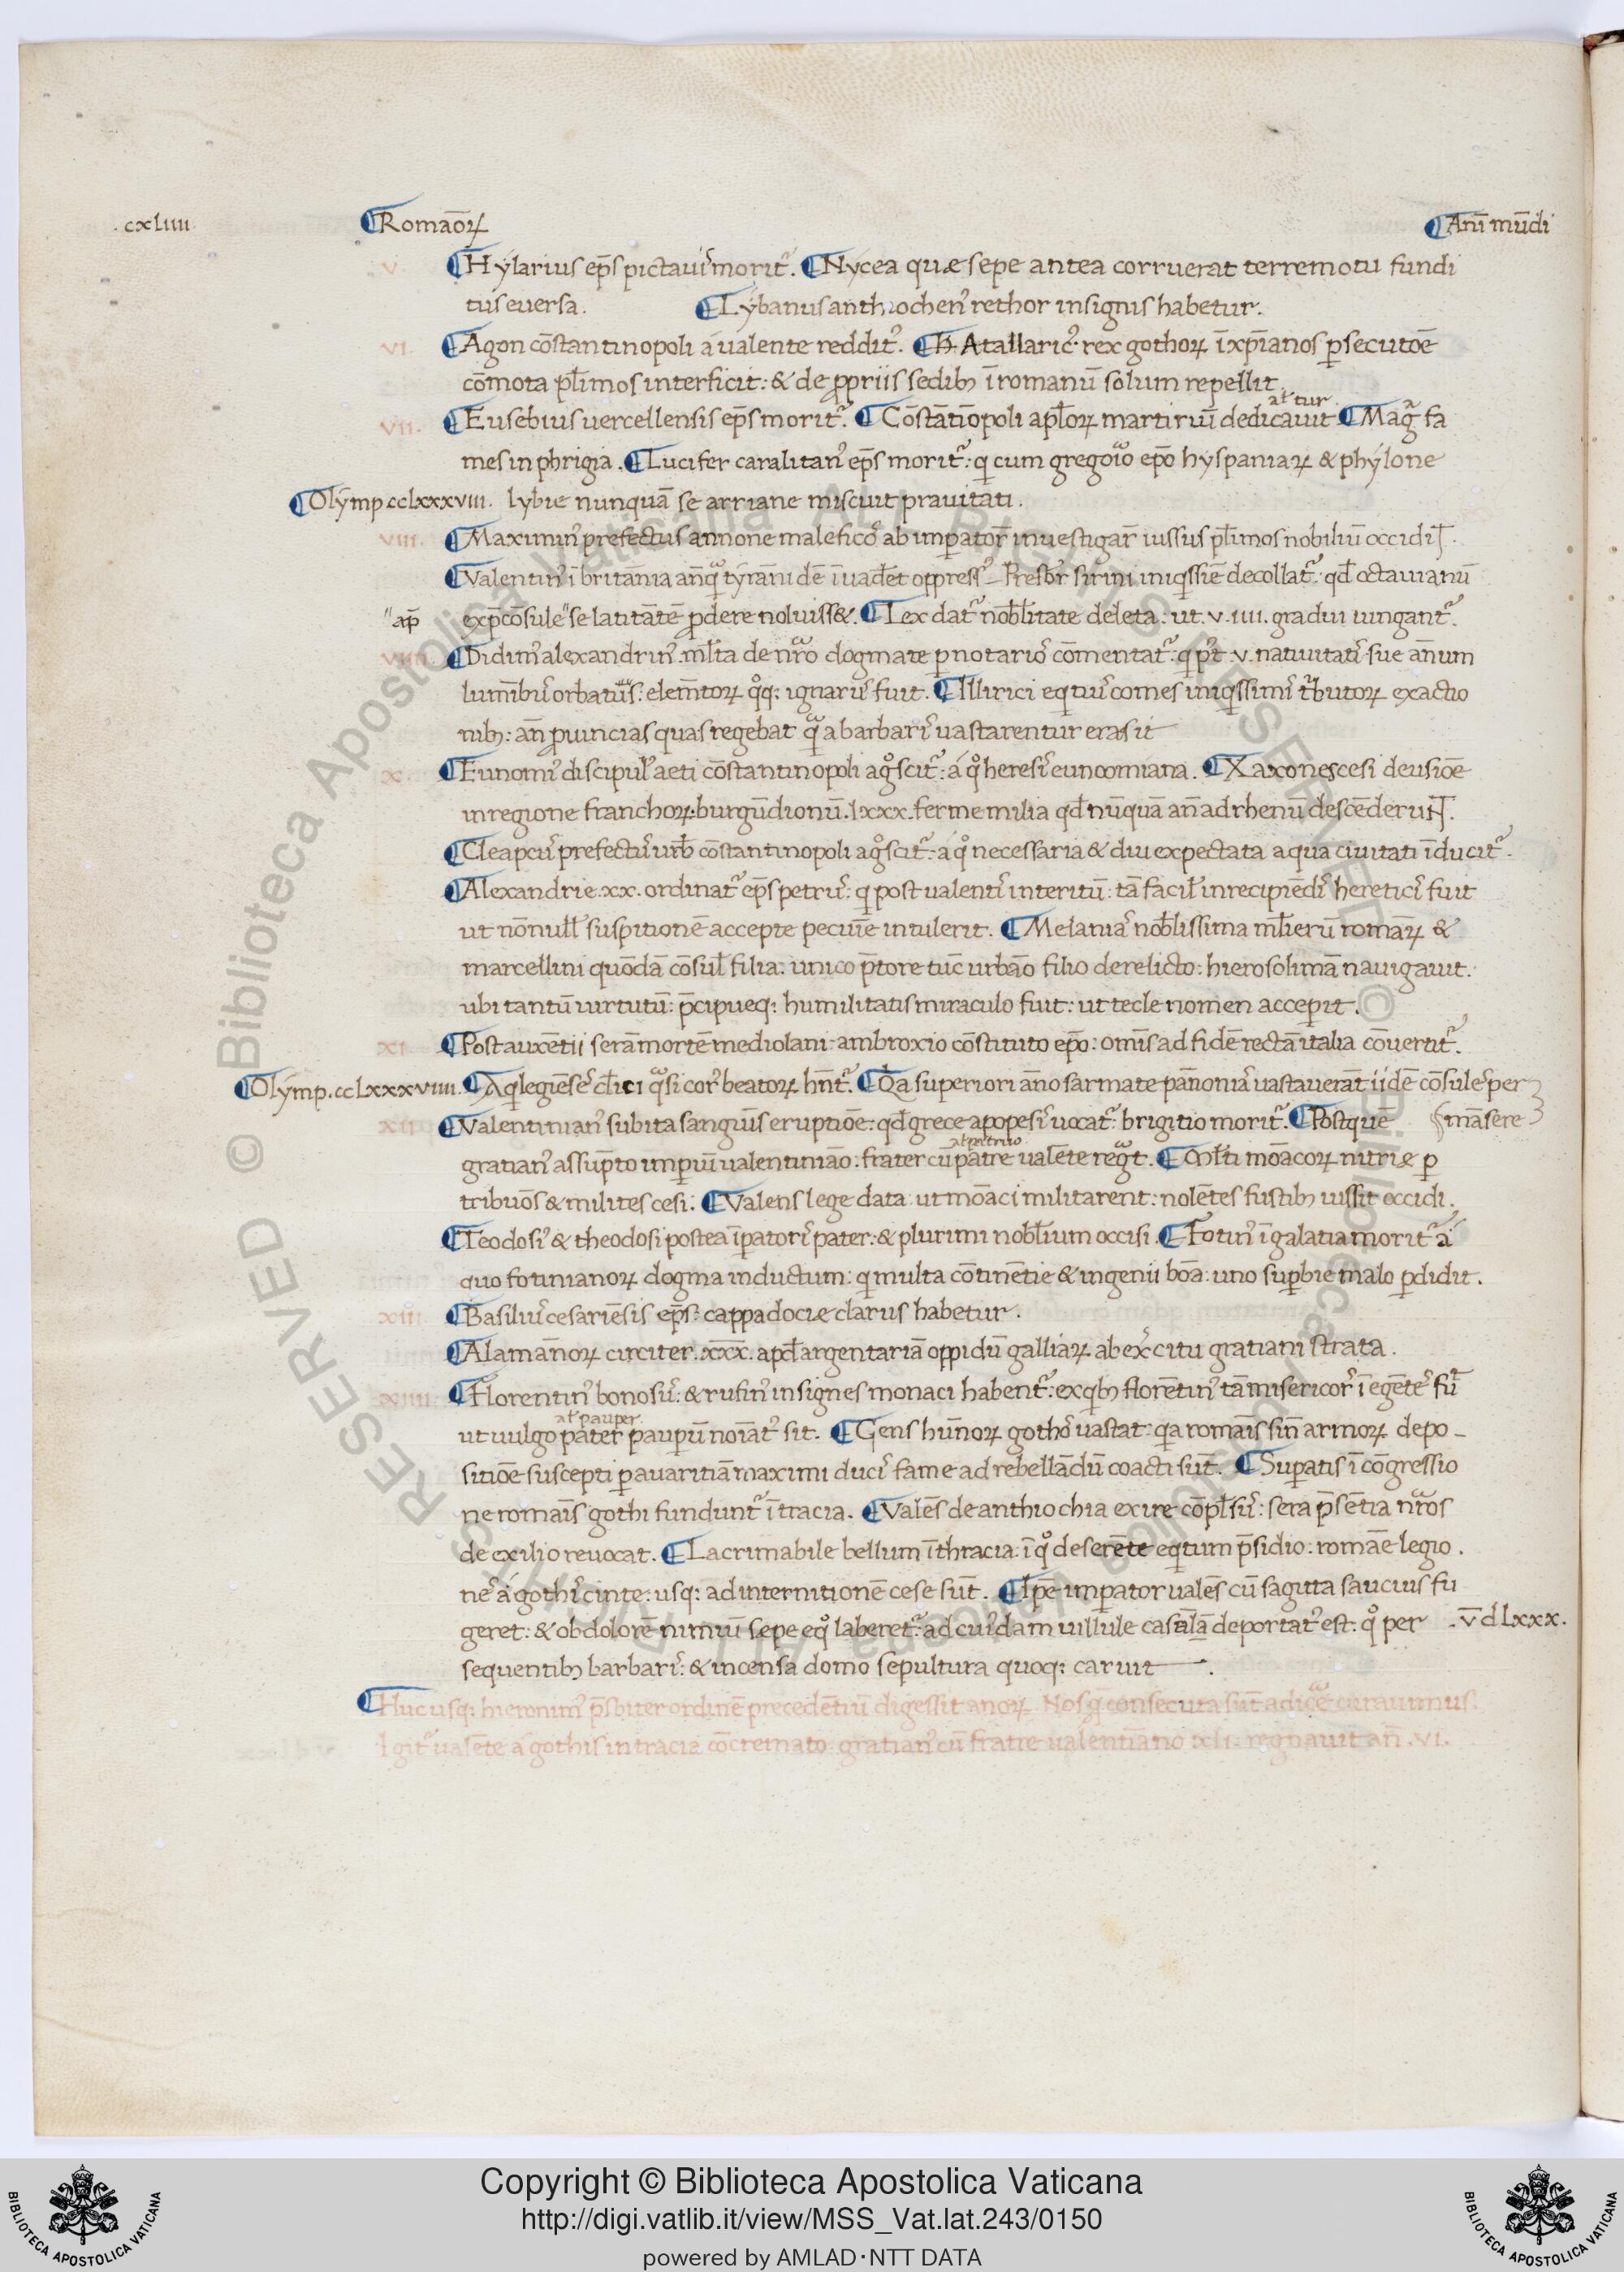 .cxLiiii.
¶Romāoꝝ
¶Anī mūdi
v. ¶Hẏlarius ep̄s pictauiˀ moritᷣ. ¶Nycea quæ sepe antea corruerat terremotu fundi
tus euersa. ¶Lẏbanus anthiochenꝰ rethor insignis habetur.
vi. ¶Agon cōstantinopoli á ualente redditᷣ. ¶h Atallaricꝰ rex gothoꝝ īxp̄ianos ꝑsecutōe
cōmota pl̄imos interficit: & de ꝓpriis sedibꝫ ī romanū solum repellit.
al̄ tur
vii. ¶Eusebius uercellensis ep̄s moritᷣ. ¶Cōstātīopoli apl̄oꝝ martiriū dedicauit ¶Magᷓ fa
mes in phrigia. ¶Lucifer caralitanꝰ ep̄s moritᷣ: qͥ cum gregoio ep̄o hyspaniaꝝ & phẏlone
¶Olẏmp.ccLxxxviii. lybie nunquā se arriane miscuit prauitati.
viii. ¶Maximinꝰ prefectus annone maleficoˀ ab imꝑatoř inuestigař iussus pl̄imos nobiliū occidit.
¶Valentinꝰ ī britānia anqᷓ tẏrānidē īuadet oppressꝰ. Presbr̄ sirini iniqssiē decollatᷣ: qd̄ octauianū
ap̄ exp̄cōsule se latitātē ꝓdere noluiss&. ¶Lex datᷣ nobl̄itate deleta: ut. v. iiii. gradui iungantᷣ.
viiii. ¶Didimꝰ alexandrinꝰ. ml̄ta de nr̄o dogmate ꝑ notarioˀ cōmentatᷣ: qͥ pꝰt .v. natiuitatiˀ sue ānum
luminibus orbatus: elem̄toꝝ qͦqꝫ: ignarus fuit. ¶Illirici eqtiuˀ comes iniqssimiˀ tͥbutoꝝ exactio
nibꝫ: an̄ ꝓuincias quas regebat qᷓ a barbariˀ uastarentur erasit
x. ¶Eunomiꝰ discipulꝰ aeti cōstantinopoli agͦscitᷣ: á qͦ heresiˀ eunoomiana. ¶Xaxones cesi deusiōe
in regione franchoꝝ: burgūdionū .lxxx. ferme milia qd̄ nūquā an̄ ad rhenū descēderunt.
¶Cleapcuˀ prefectuˀ urb̄ cōstantinopoli agͦscitᷣ: á qͦ necessaria & diu expectata aqua ciuitati īducitᷣ.
¶Alexandrie .xx. ordinatᷣ ep̄s petruˀ: qͥ post ualentiˀ interitū: tā facilˀ in recipiēdiˀ hereticiˀ fuit
ut nōnull̄ suspitionē accepte pecunie intulerit. ¶Melaniaˀ nobl̄issima ml̄ierū romāꝝ &
marcellini quōdā cōsul̄ filia: unico p̄tore tūc urbāo filio derelicto: hierosolimā nauigauit.
ubi tantū uirtutū: p̄cipueqꝫ: humilitatis miraculo fuit: ut tecle nomen accepit.
xi. ¶Post auxētii serā mortē mediolani: ambroxio cōstituto ep̄o: omīs ad fidē rectā italia cōuertitᷣ.
¶Olẏmp.ccLxxxviiii. ¶Aqlegiēseˀ cl̄ici qᷓsi corˀ beatoꝝ hn̄tᷣ. ¶Qa superiori āno sarmate pānoniaˀ uastauerāt iidē cōsuleˀ per
māsere
xii. ¶Valentinianꝰ subita sanguīs eruptiōe: qd̄ grece apopesiˀ uocatᷣ: brigitio moritᷣ. ¶Postquē
al̄ patruo
gratianꝰ assūpto imꝑiū ualentiniāo: frater cū patre ualēte regᷓt. ¶Ml̄ti mōacoꝝ nitriæ ꝑ
tribuōs & milites cesi. ¶Valens lege data: ut mōaci militarent: nolētes fustibꝫ iussit occidi.
¶Teodosiꝰ & theodosi postea īpatoriˀ pater: & plurimi nobl̄ium occisi. ¶Fotinꝰ ī galatia moritᷣ á
quo fotinianoꝝ dogma inductum: qͥ multa cōtinētie & ingenii bōa: uno suꝑbie malo ꝑdidit.
xiii. ¶Basiliuˀ cesariēsis ep̄s: cappadociæ clarus habetur.
¶Alamānoꝝ circiter. x̄x̄x̄. apd̄ argentariā oppidū galliaꝝ ab exˀcitu gratiani strata.
xiiii. ¶Florentinꝰ bonosuˀ: & rufinꝰ insignes monaci habentᷣ: ex qbꝫ florētinꝰ tā misericorˀ ī egēteˀ fuit
al̄ pauper
ut uulgo pater pauꝑū noiatꝰ sit. ¶Gens hūnoꝝ gothoˀ uastat: qa romāis sin̄ armoꝝ depo–
sitiōe suscepti ꝑ auaritiā maximi duciˀ fame ad rebellādū coacti sūt. ¶Suꝑatis ī cōgressio
ne romāis gothi funduntᷣ ī tracia. ¶Valēs de anthiochia exire cōpl̄suˀ: sera p̄sētia nr̄os
de exilio reuocat. ¶Lacrimabile bellum ī thracia: ī qͦ deserēte eqtum p̄sidio: romāe legio.
neˀ á gothiˀ cinte: usqꝫ: ad internitionē cese sūt. ¶Ip̄e imꝑator ualēs cū sagitta saucius fu
geret: & ob dolorē nimiū sepe eqͦ laberetᷣ: ad cuiꝰdam uillule casulā deportatꝰ est: qͦ per .v̄dLxxx.
sequentibꝫ barbariˀ: & incensa domo sepultura quoqꝫ: caruit.
¶Huc usqꝫ: hieronimꝰ p̄sbiter ordinē precedētiū digessit anoꝝ. Nos q̄ consecuta sūt adicēˀ curauimus.
Igitᷣ ualēte á gothis in tracia cōcremato gratianꝰ cū fratre ualentiāno xLi. regnauit an̄ .vi.
Copyright © Biblioteca Apostolica Vaticana
http://digi.vatlib.it/view/MSS_Vat.lat.243/0150
powered by AMLAD·NTT DATA
BIBLIOTECA APOSTOLICA VATICANA
BIBLIOTECA APOSTOLICA VATICANA